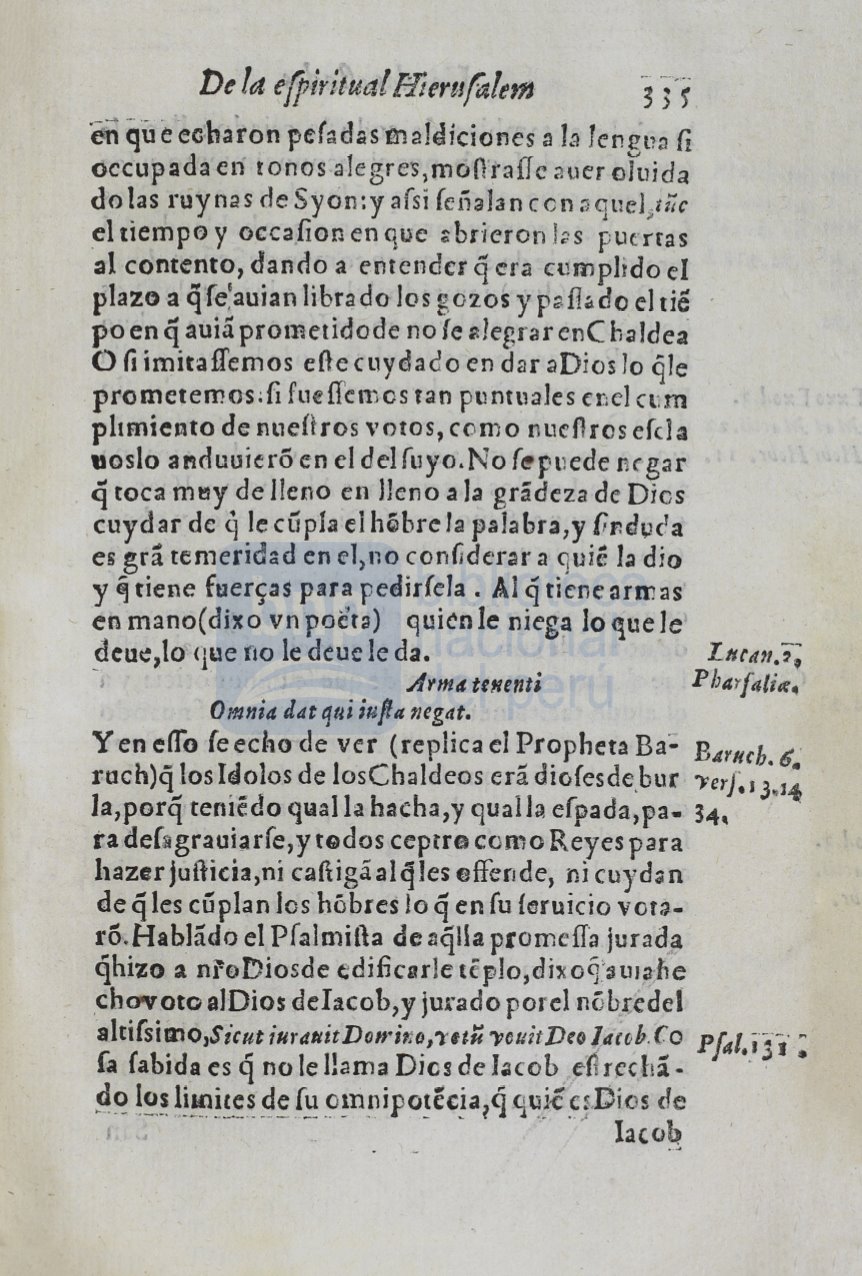 De la eſpiritual Hieruſalem 335
en que echaron peſadas maldiciones a la lengua ſi
occupada en tonos alegres, moſtraſſe auer oluida
do las ruynas de Syon: y aſsi ſeñalan con aquel, tũc
el tiempo y occaſion en que abrieron las puertas
al contento, dando a entender q̃ era cumplido el
plazo a q̃ ſe auian librado los gozos y paſſado el tiẽ
po en q̃ auiã prometido de no ſe alegrar en Chaldea
O ſi imitaſſemos eſte cuydado en dar a Dios lo q̃ le
prometemos: ſi fueſſemos tan puntuales en el cum
plimiento de nueſtros votos, como nueſtros eſcla
uos lo anduuierõ en el del ſuyo. No ſe puede negar
q̃ toca muy de lleno en lleno a la grãdeza de Dios
cuydar de q̃ le cũpla el hõbre la palabra, y ſin duda
es grã temeridad en el, no conſiderar a quiẽ la dio
y q̃ tiene fuerças para pedirſela. Al q̃ tiene armas
en mano (dixo vn poëta) quien le niega lo que le
deue, lo que no le deue le da.
Lucan. 7.
Pharſaliæ.
Arma tenenti
Omnia dat qui iuſta negat.
Y en eſſo ſe echo de ver (replica el Propheta Ba-
ruch) q̃ los Idolos de los Chaldeos erã dioſes de bur
la, porq̃ teniẽdo qual la hacha, y qual la eſpada, pa-
ra deſagrauiarſe, y todos ceptro como Reyes para
hazer juſticia, ni caſtigã al q̃ les offende, ni cuydan
de q̃ les cũplan los hõbres lo q̃ en ſu ſeruicio vota-
rõ. Hablãdo el Pſalmiſta de aq̃lla promeſſa jurada
q̃ hizo a nr̃o Dios de edificarle tẽplo, dixo q̃ auia he
cho voto al Dios de Iacob, y jurado por el nõbre del
altiſsimo, Sicut iurauit Domino, votũ vouit Deo Iacob. Co
ſa ſabida es q̃ no le llama Dios de Iacob eſtrechã-
do los limites de ſu omnipotẽcia, q̃ quiẽ es Dios de
Iacob
Baruch. 6.
verſ. 13. 14
34.
Pſal. 131.